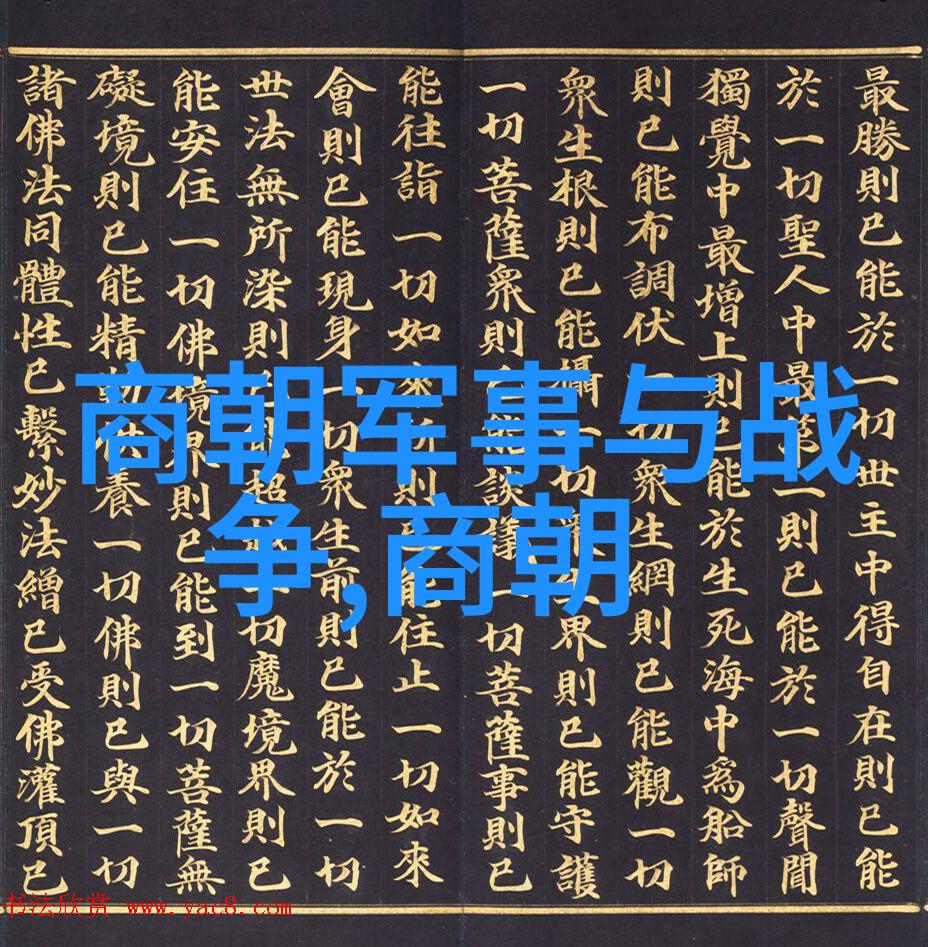 最勝則已能於一切世主中得自在則已能
於一切聖人中最第一則已能於一切聲聞
獨覺中最增上則已能於生死海中爲船師
則已能布調伏一切衆生網則已能觀一切
衆生根則已能攝一切衆生界則已能守護
一切菩薩衆則已能談議一切菩薩事則已
能往詣一切如來所則已能住止一切如來
會則已能現身一切衆生前則已能於一切
世法無所染則已能超越一切魔境界則已
能安住一切佛境界則已能到一切菩薩無
礙境則已能精勤供養一切佛則已與一切
諸佛法同體性已繫妙法繒已受佛灌頂已
商朝军事与战
争,商朝
书法欣赏 www.yac8.com